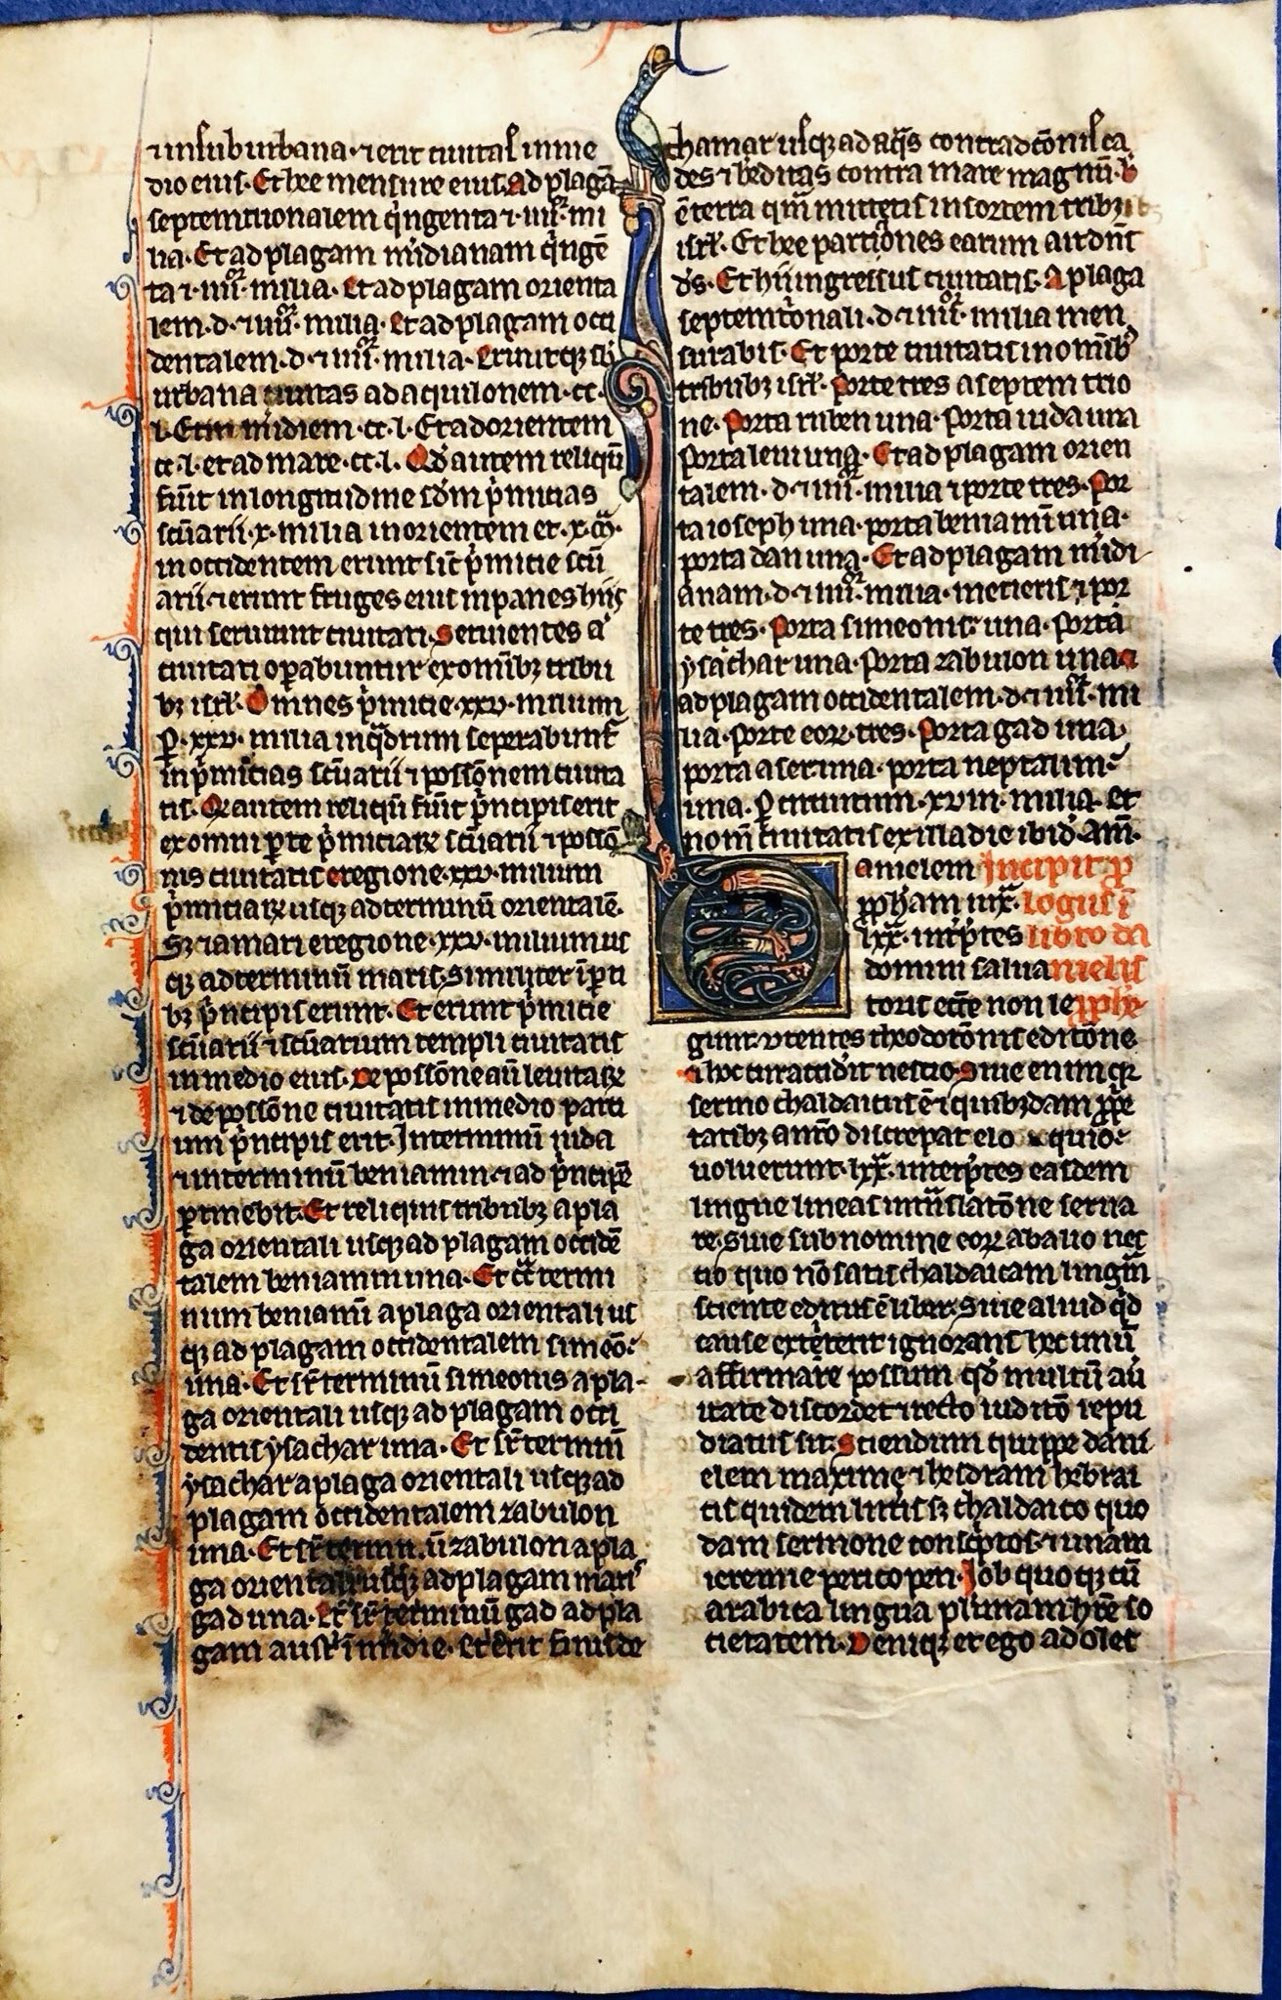 ⁊ in suburbana· ⁊ erit ciuitas in me
dio eius. Et hee mensure eius. Ad plagā
septemtrionalem q̇ngenta ⁊ iiii͛ mi
lia. Et ad plagam m̓idianam q̇ngē
ta ⁊ iiii͛ milia. Et ad plagam orienta
lem .d. ⁊ iiii͛ milia. Et ad plagam occi
dentalem .d. ⁊ iiii͛ milia. Erunt qȝ sb̓
urbana ciuitas ad aquilonem .cc.
l. Et in m̓idiem .cc.l. Et ad orientem
cc.l. et ad mare .cc.l. Qd̓ autem reliqū
fu̓it in longitudine scd̓m p̓mitias
sc̄uarii .x. milia in orientem et .x. m̄.
in occidentem erunt sic̄ p̓mitie sc̄u
arii ⁊ erunt fruges eius in panes hiis
qui seruiunt ciuitati. Seruientes a̓
ciuitati oꝑabuntur ex om̄ibȝ tribu
bȝ isrl̓. Omnes p̓mitie .xxv. milium
ꝑ .xxv. milia in qͣdrum seperabunt̓
in p̓mitias sc̄uarii ⁊ poss̄onem ciuita
tis. Qd̓ autem reliqū fu̓it p̓ncipis erit
ex omni ꝑte p̓mitiaꝝ sc̄uarii ⁊ poss̄o
nis ciuitatis e regione .xxv. milium
p̓mitiaꝝ usqȝ ad terminū orientalē.
Sȝ ⁊ a mari e regione .xxv. milium us
qȝ ad terminū maris. Similiter ī ꝑti
bȝ p̓ncipis erunt. Et erunt p̓mitie
sc̄uarii ⁊ sc̄uarium templi ciuitatis
in medio eius. De poss̄one aū leuitaꝝ
⁊ de poss̄one ciuitatis in medio parti
um p̓ncipis erit. In terminū iuda
⁊ in terminū beniamin ⁊ ad p̓ncipē
ꝑtinebit. Et reliquis tribubȝ a pla
ga orientali usqȝ ad plagam occidē
talem beniamin una. Et cͣ termi
num beniamī a plaga orientali us
qȝ ad plagam occidentalem simeō
una. Et sr̄ terminū simeonis a pla
ga orientali usqȝ ad plagam occi
dentis ysachar una. Et sr̄ terminū
ysachar a plaga orientali usqȝ ad
plagam occidentalem zabulon
una. Et sr̄ terminū zabulon a pla
ga orientali usqȝ ad plagam maris
gad una. Et sr̄ terminū gad ad pla
gam aust̓ī m̓idie. et erit finis de
thamar usqȝ ad aq̄s contradc̄onis ca
des ⁊ h̓editas contra mare magnū. h̓
ē terra qͣm mittetis in sortem tribȝ
isrl̓. Et hee partiones earum ait dn̄s
ds̄. Et hii ingressus ciuitatis. A plaga
septemt̓onali .d. ⁊ iiii͛ milia men
surabis. Et porte ciuitatis in nom̄ibȝ
tribubȝ isrl̓. Porte tres a septemtrio
ne. Porta ruben una. Porta iuda una
Porta leui una. Et ad plagam orien
talem .d. ⁊ iiii͛ milia ⁊ porte tres. Por
ta ioseph una. porta beniamī una.
porta dan una. Et ad plagam m̓idi
anam .d. ⁊ iiii͛ milia metieris ⁊ por
te tres. Porta simeonis una. Porta
ysachar una. Porta zabulon una. Et
ad plagam occidentalem .d. ⁊ iiii͛ mi
lia. Porte eoꝝ tres. Porta gad una.
porta aser una. porta neptalim
una. ꝑ circuitum .xviii. milia. et
nom̄ ciuitatis ex illa die ibid̓. Am̄.
Danielem Incipit ꝓ
ꝓpham iuxͣ logus ī
lxxͣ. int̓p̓tes libro da
domini salua nielis
toris ecc̄e non le ꝓphe
gunt. utentes theodoc̄onis edic̄one
⁊ hoc cur accid̓it nescio. Siue enim qꝛ
sermo chaldaicus ē ⁊ quibȝdam ꝓp̓e
tatibȝ a nr̄o discrepat eloquio
uoluerunt .lxxͣ. interp̓tes easdem
lingue lineas in tͣnslatōne serua
re. siue sub nomine eoꝝ ab alio nes
cio quo nō satis chaldaicam lingͣm
sciente editus ē liber. Siue aliud qͥd
cause extiterit ignorans hoc unū
affirmare possum qd̓ multū a u̓
itate discordet ⁊ recto iudic̄o repu
diatus sit. Sciendum quippe dani
elem maxime ⁊ hesdram hebrai
cis quidem litt̓is sȝ chaldaico quo
dam sermone consc̓ptos ⁊ unam
ieremie pericopen. Iob quoqȝ cū
arabica lingua plurimam h̓re so
cietatem. Denique et ego adolesc